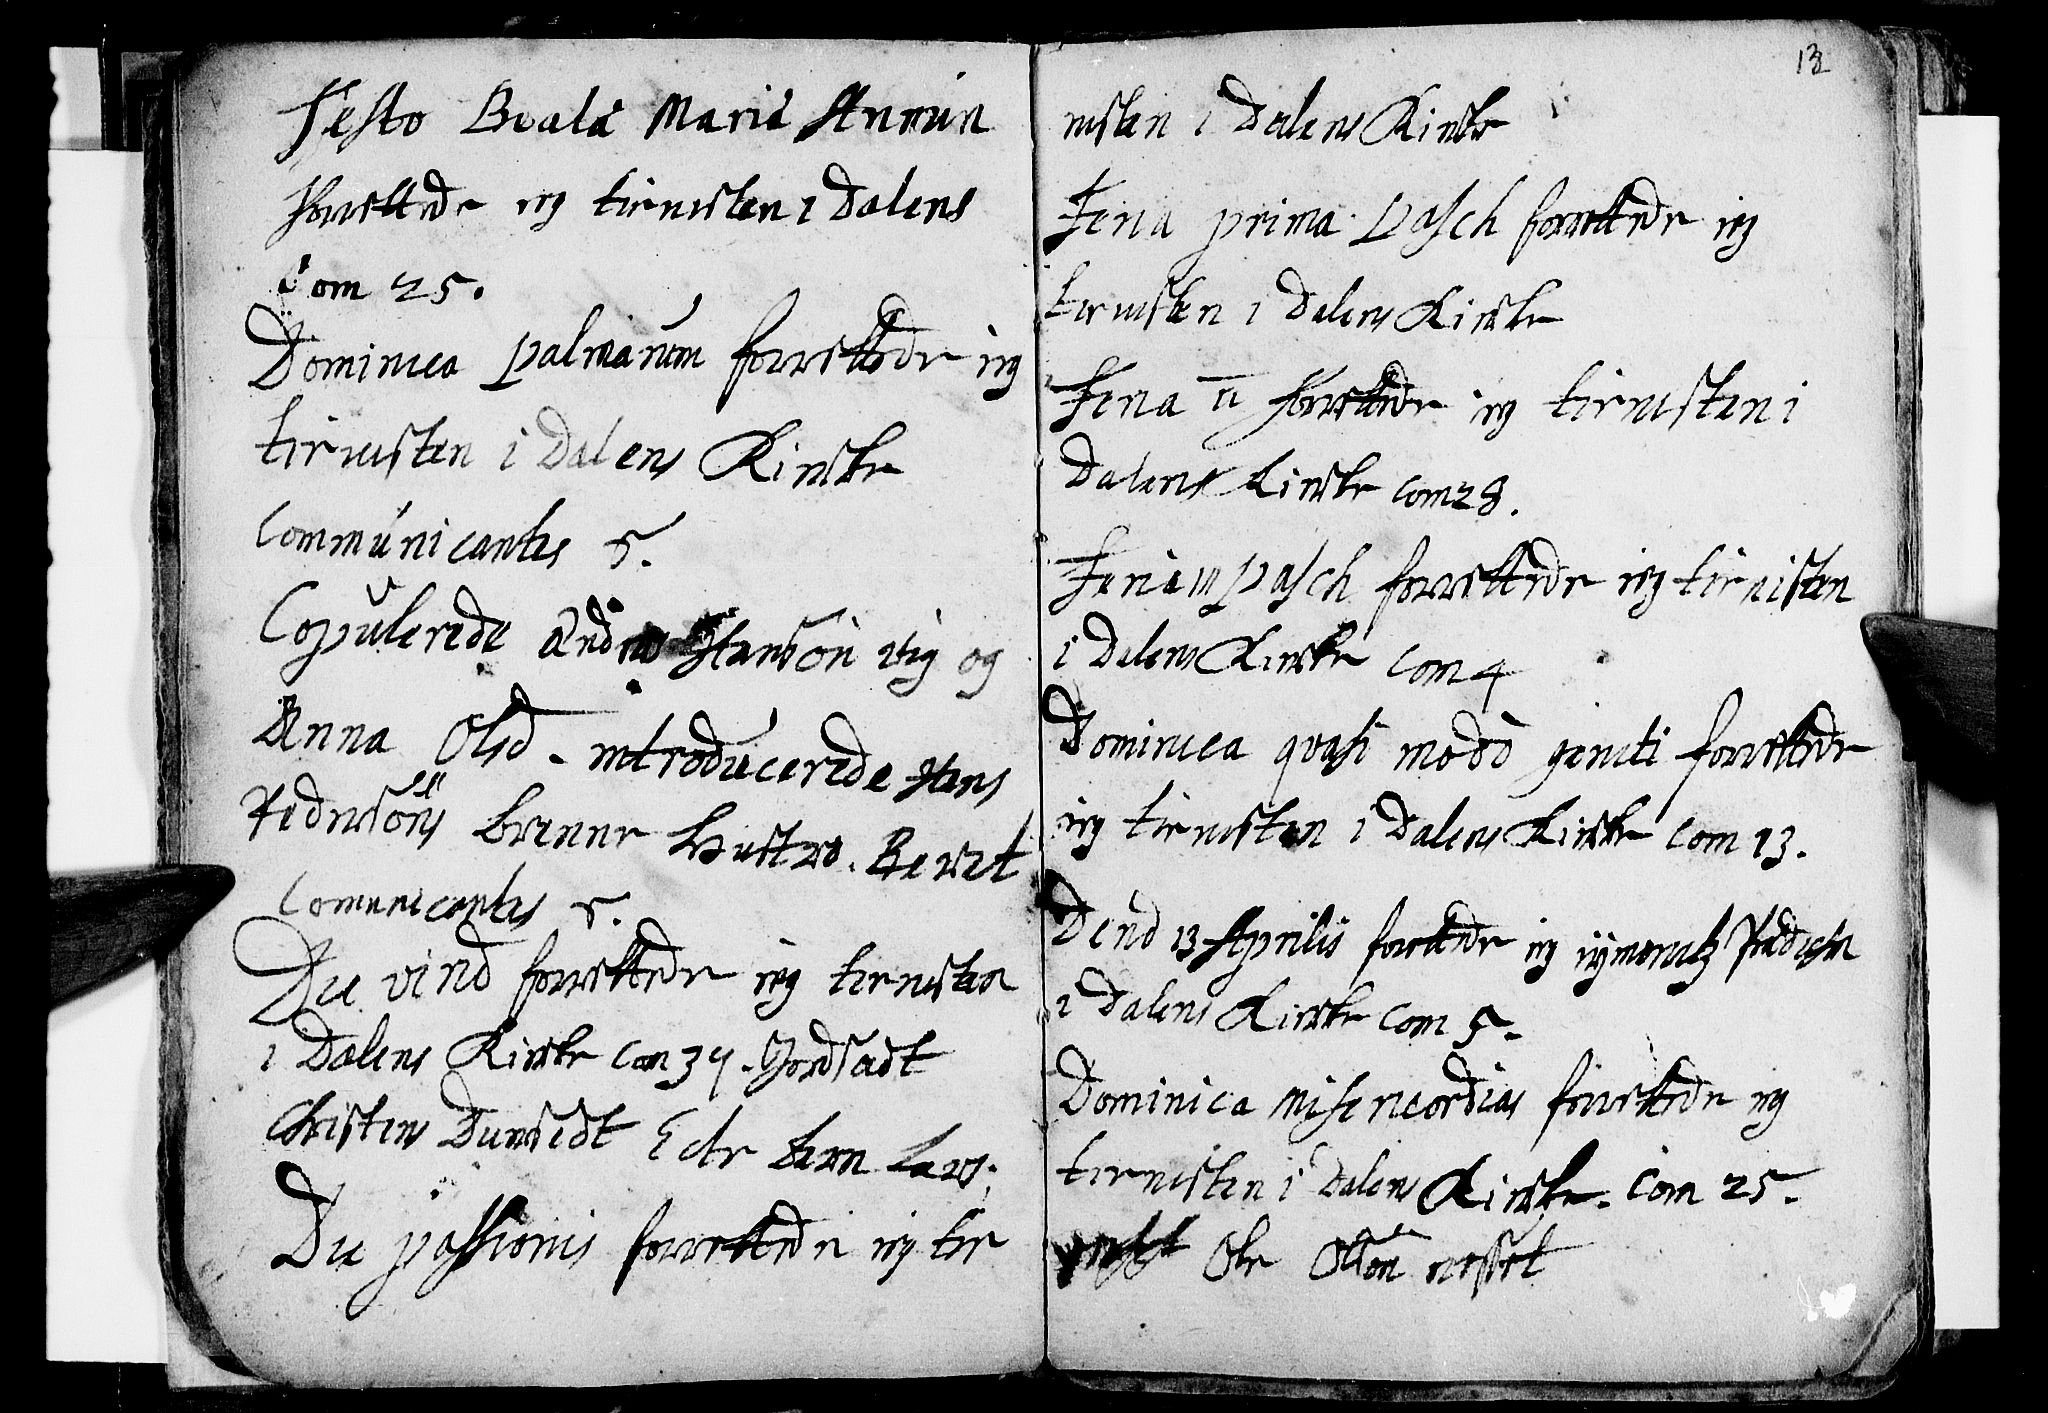 Festo Beatæ Mariæ Annun
forrettede ieg tienisten i Dalens
Com 25.
Dominica palmarum forrettede ieg
tienisten i Dalens Kircke
Communicantes 5.
Copulerede Andres Hansøn vig og
Anna Olsd. introducerede Hans
Pedersøns hustro. Beret
Comunicantes 5.
Die virid forrettede ieg tienisten
i Dalens Kircke Com 34. Jordsadt
Christens Dunsedt barn Lars.
Die passionis forrettede ieg tie
13
nisten i Dalens Kircke
Feria prima Pasch forrettede ieg
tienisten i Dalens Kircke
Feria II forrettede ieg tienisten i
Dalens Kircke Com 28.
Feria III Pasch forrettede ieg tienisten
i Dalens Kircke Com 4
Dominica qvasi modo geniti forrettede
ieg tienisten i Dalens Kircke Com 13.
Dend 13 Aprilis forrettede ieg
i Dalens Kircke Com 5.
Dominica Misericordias forrettede ieg
tienisten i Dalens Kircke. Com 25.
Ole Olsøn nesset